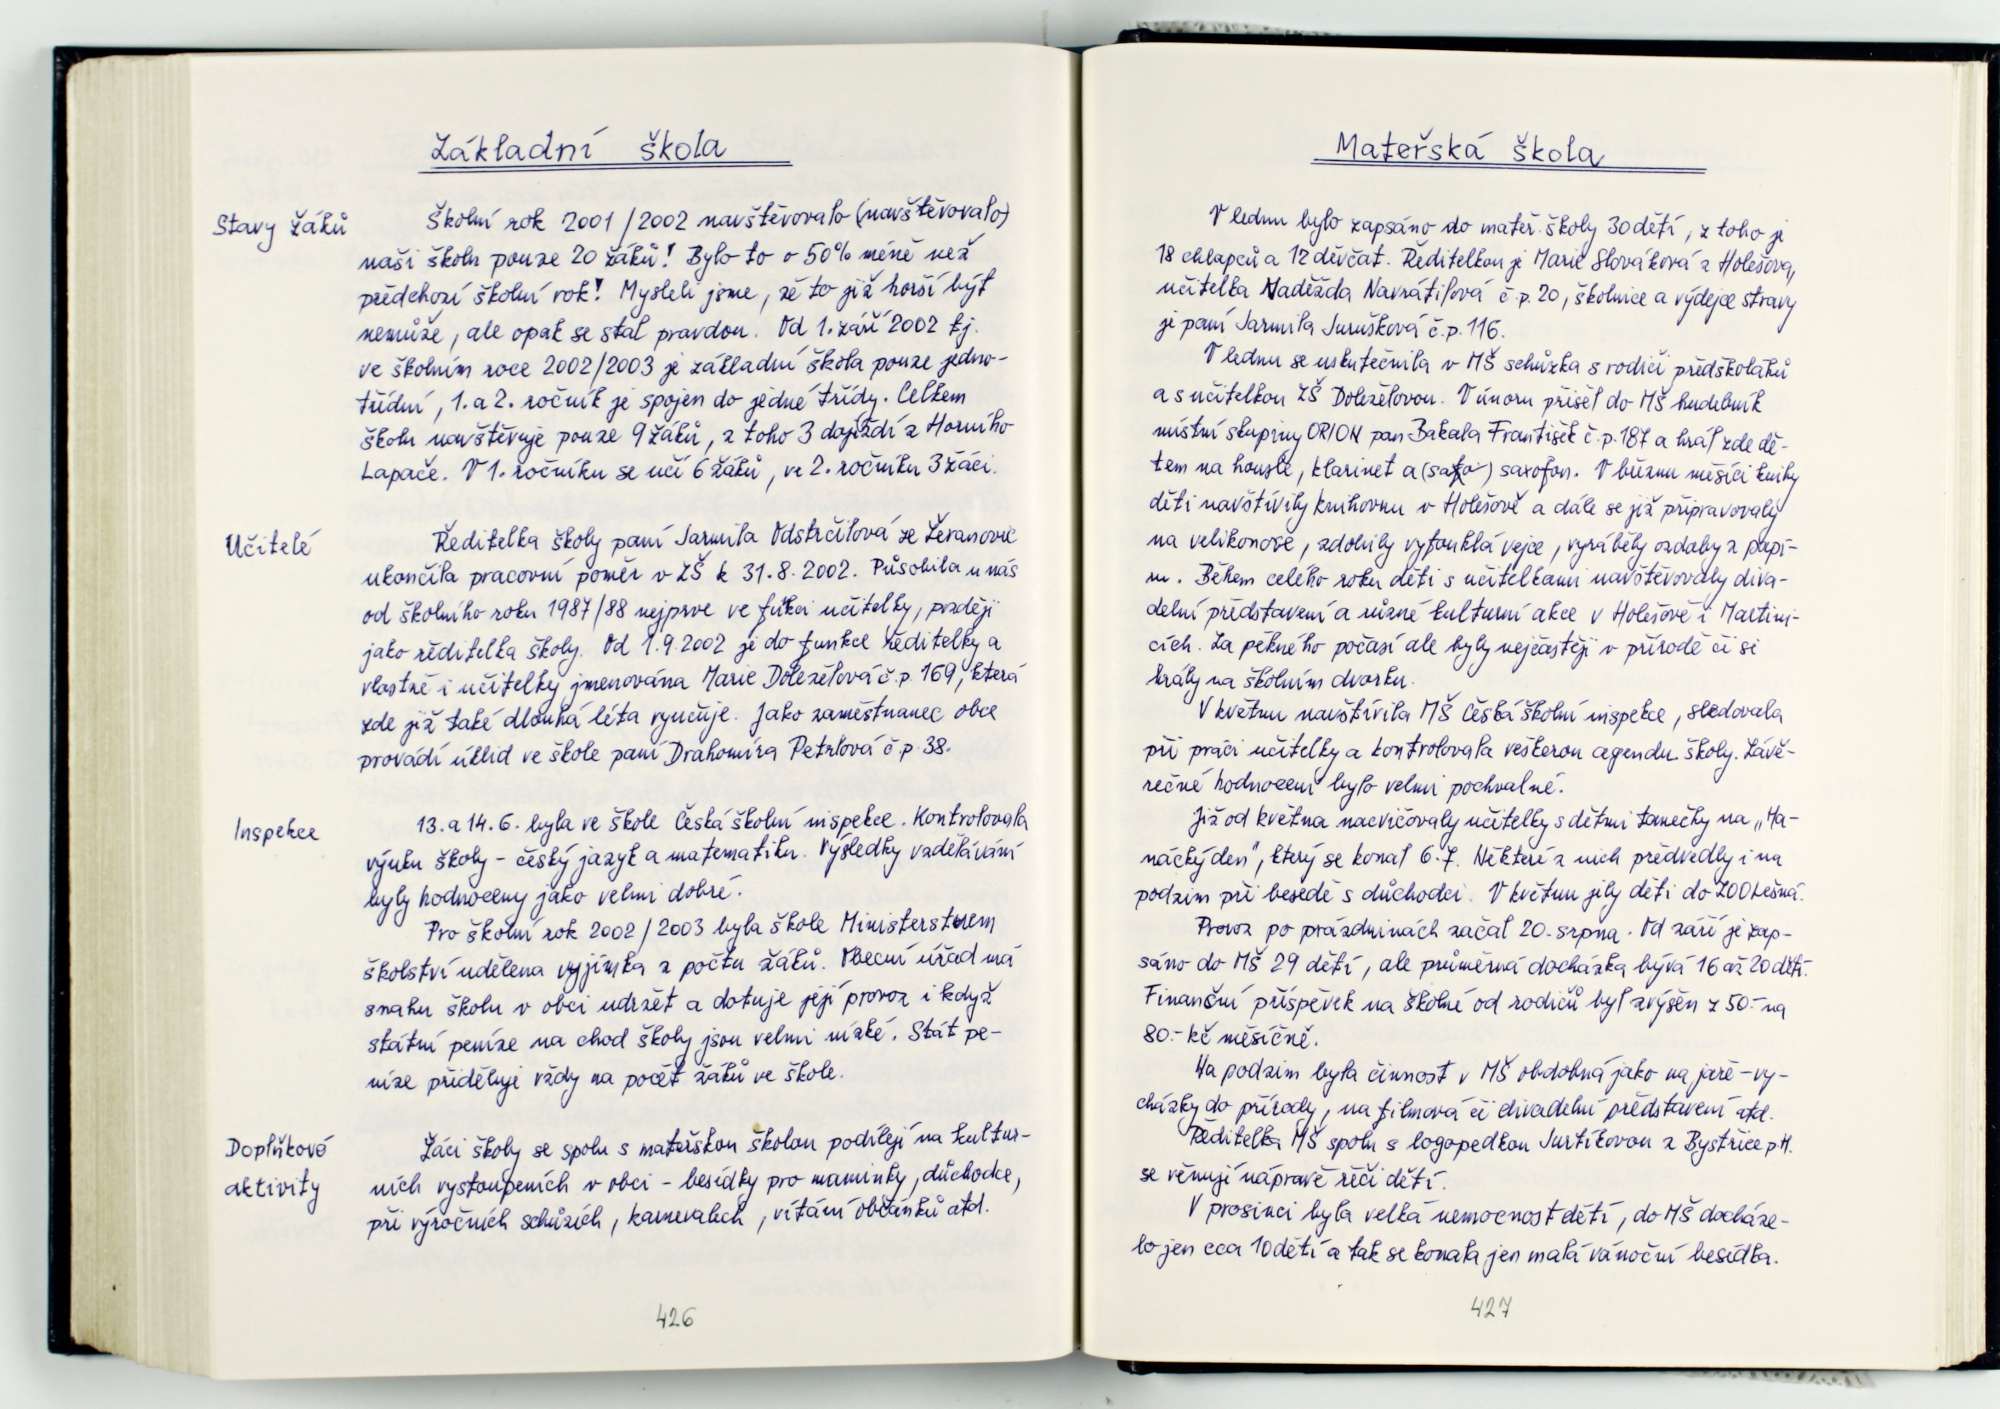 Základní škola
Stavy žáků
Školní rok 2001/2002 navštěvovalo (navštěvovalo)
naši školu pouze 20 žáků! Bylo to o 50% méně než
předchozí školní rok! Mysleli jsme, že to již horší být
nemůže, ale opak se stal pravdou. Od 1. září 2002 tj.
ve školním roce 2002/2003 je základní škola pouze jedno-
třídní, 1. a 2. ročník je spojen do jedné třídy. Celkem
školu navštěvuje pouze 9 žáků, z toho 3 dojíždí z Horního
Lapače. V 1. ročníku se učí 6 žáků, ve 2. ročníku 3 žáci.
Učitelé
Ředitelka školy paní Jarmila Odstrčilová ze Žeranovic
ukončila pracovní poměr v ZŠ k 31.8.2002. Působila u nás
od školního roku 1987/88 nejprve ve fukci učitelky, později
jako ředitelka školy. Od 1.9.2002 je do funkce ředitelky a
vlastně i učitelky jmenována Marie Doleželová č.p. 169, která
zde již také dlouhá léta vyučuje. Jako zaměstnanec obce
provádí úklid ve škole paní Drahomíra Petrlová č.p. 38.
Inspekce
13. a 14.6. byla ve škole Česká školní inspekce. Kontrolovala
výuku školy - český jazyk a matematiku. Výsledky vzdělávání
byly hodnoceny jako velmi dobré.
Pro školní rok 2002/2003 byla škole Ministerstvem
školství udělena vyjímka z počtu žáků. Obecní úřad má
snahu školu v obci udržet a dotuje její provoz i když
státní peníze na chod školy jsou velmi nízké. Stát pe-
níze přiděluje vždy na počet žáků ve škole.
Doplňkové
aktivity
Žáci školy se spolu s mateřskou školou podílejí na kultur-
ních vystoupeních v obci - besídky pro maminky, důchodce,
při výročních schůzích, karnevalech, vítání občánků atd.
426
Mateřská škola
V lednu bylo zapsáno do mateř. školy 30 dětí, z toho je
18 chlapců a 12 děvčat. Ředitelkou je Marie Slováková z Holešova,
učitelka Naděžda Navrátilová č.p. 20, školnice a výdejce stravy
je paní Jarmila Jurušková č.p. 116.
V lednu se uskutečnila v MŠ schůzka s rodiči předškoláků
a s učitelkou ZŠ Doleželovou. V únoru přišel do MŠ hudebník
místní skupiny ORION pan Bakala František č.p. 187 a hrál zde dě-
tem na housle, klarinet a (saxo) saxofon. V březnu měsíci knihy
děti navštívily knihovnu v Holešově a dále se již připravovaly
na velikonoce, zdobily vyfouklá vejce, vyráběly ozdoby z papí-
ru. Během celého roku děti s učitelkami navštěvovaly diva-
delní představení a různé kulturní akce v Holešově i Martini-
cích. Za pěkného počasí ale byly nejčastěji v přírodě či si
hrály na školním dvorku.
V květnu navštívila MŠ Česká školní inspekce, sledovala
při práci učitelky a kontrolovala veškerou agendu školy. Závě-
rečné hodnocení bylo velmi pochvalné.
Již od května nacvičovaly učitelky s dětmi tanečky na „Ha-
nácký den", který se konal 6.7. Některé z nich předvedly i na
podzim při besedě s důchodci. V květnu jely děti do ZOO Lešná.
Provoz po prázdninách začal 20. srpna. Od září je zap-
sáno do MŠ 29 dětí, ale průměrná docházka bývá 16 až 20 dětí.
Finanční příspěvek na školné od rodičů byl zvýšen z 50.- na
80.- kč měsíčně.
Na podzim byla činnost v MŠ obdobná jako na jaře - vy-
cházky do přírody, na filmová či divadelní představení atd.
Ředitelka MŠ spolu s logopedkou Jurtíkovou z Bystřice p H.
se věnují nápravě řeči dětí.
V prosinci byla velká nemocnost dětí, do MŠ docháze-
lo jen cca 10 dětí a tak se konala jen malá vánoční besídka.
427